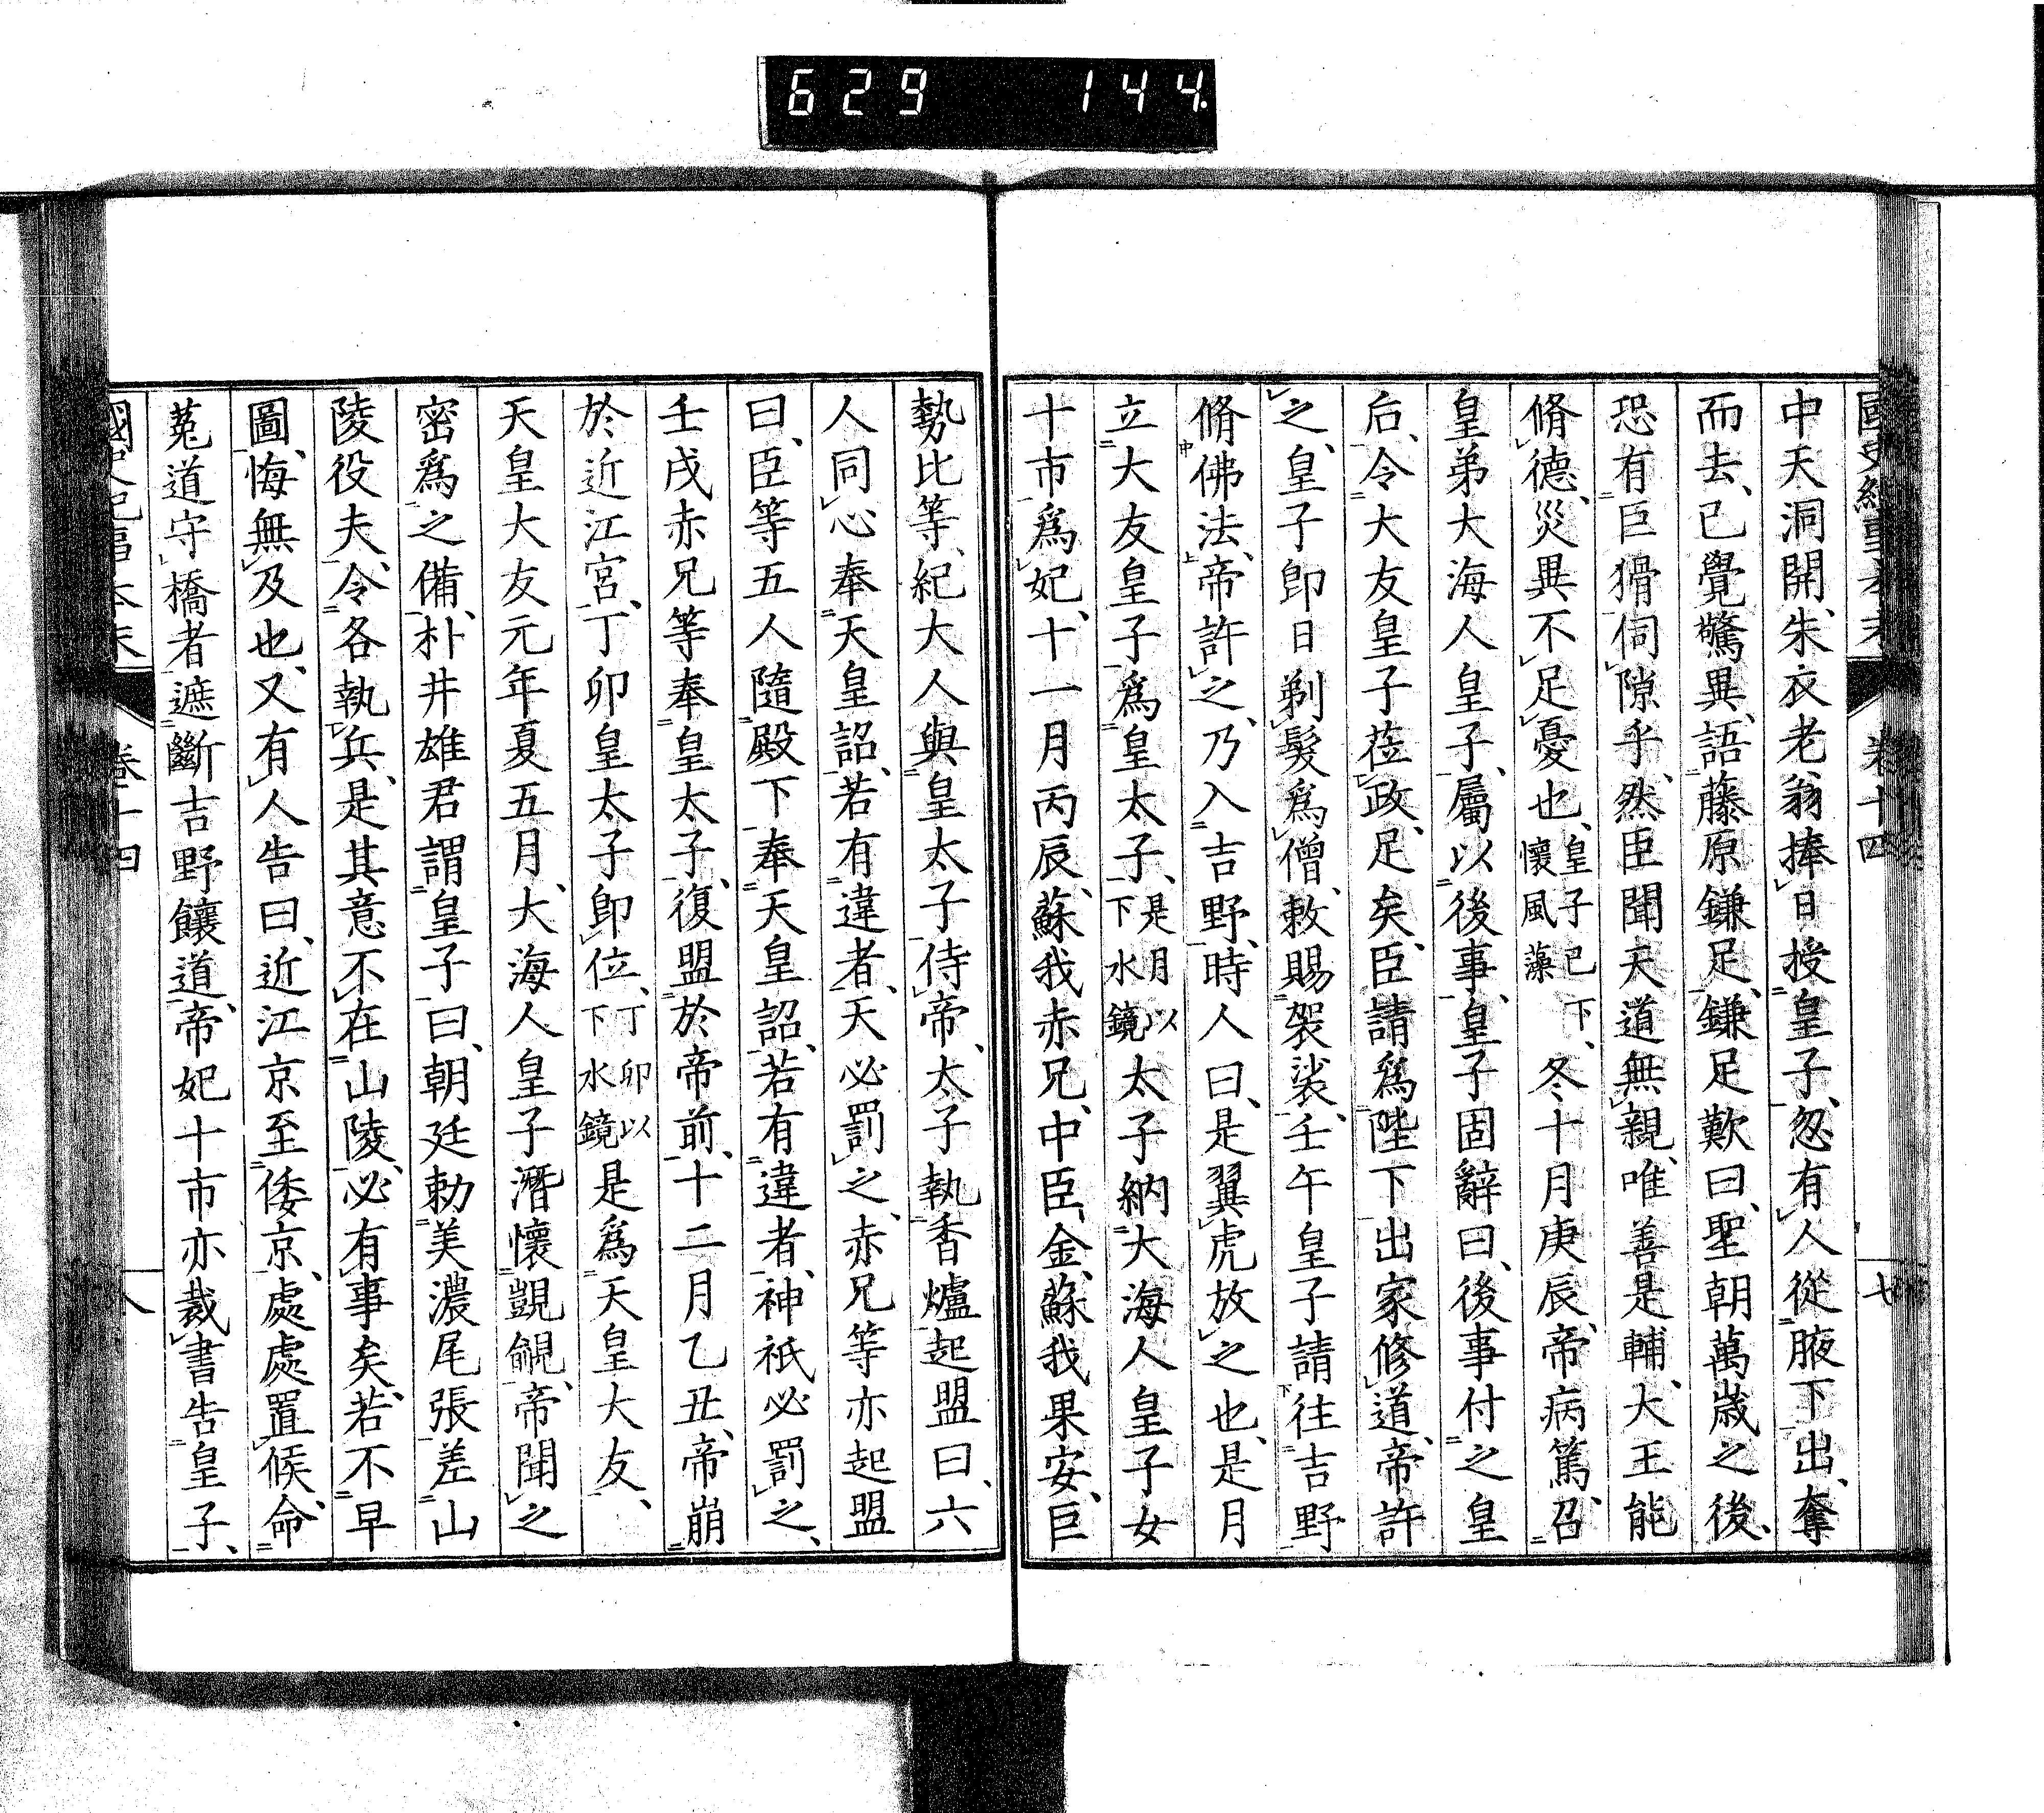 629 144
國史紀事本末 卷十四 七
中天洞開、朱衣老翁捧日授皇子、忽有人從腋下出、奪
而去、已覺驚異、語藤原鎌足、鎌足歎曰、聖朝萬歲之後、
恐有巨猾伺隙乎、然臣聞天道無親、唯善是輔、大王能
脩德、災異不足憂也、皇子已下、懷風藻 冬十月庚辰、帝病篤、召
皇弟大海人皇子、屬以後事、皇子固辭曰、後事付之皇
后、令大友皇子莅政、足矣、臣請爲陛下出家修道、帝許
之、皇子卽日剃髮爲僧、敕賜袈裟、壬午皇子請往吉野
脩佛法、帝許之、乃入吉野、時人曰、是翼虎放之也、是月
立大友皇子爲皇太子、是月以下水鏡 太子納大海人皇子女
十市爲妃、十一月丙辰、蘇我赤兄、中臣金、蘇我果安、巨
勢比等、紀大人與皇太子侍帝、太子執香爐起盟曰、六
人同心奉天皇詔、若有違者、天必罰之、赤兄等亦起盟
曰、臣等五人隨殿下奉天皇詔、若有違者、神祇必罰之、
壬戌赤兄等奉皇太子、復盟於帝前、十二月乙丑、帝崩
於近江宮、丁卯皇太子卽位、丁卯以下水鏡 是爲天皇大友、
天皇大友元年夏五月、大海人皇子潛懷覬覦、帝聞之
密爲之備、朴井雄君謂皇子曰、朝廷勅美濃尾張差山
陵役夫、令各執兵、是其意不在山陵、必有事矣、若不早
圖、悔無及也、又有人告曰、近江京至倭京、處處置候、命
菟道守橋者遮斷吉野饟道、帝妃十市亦裁書告皇子、
國史紀事本末 卷十四 八